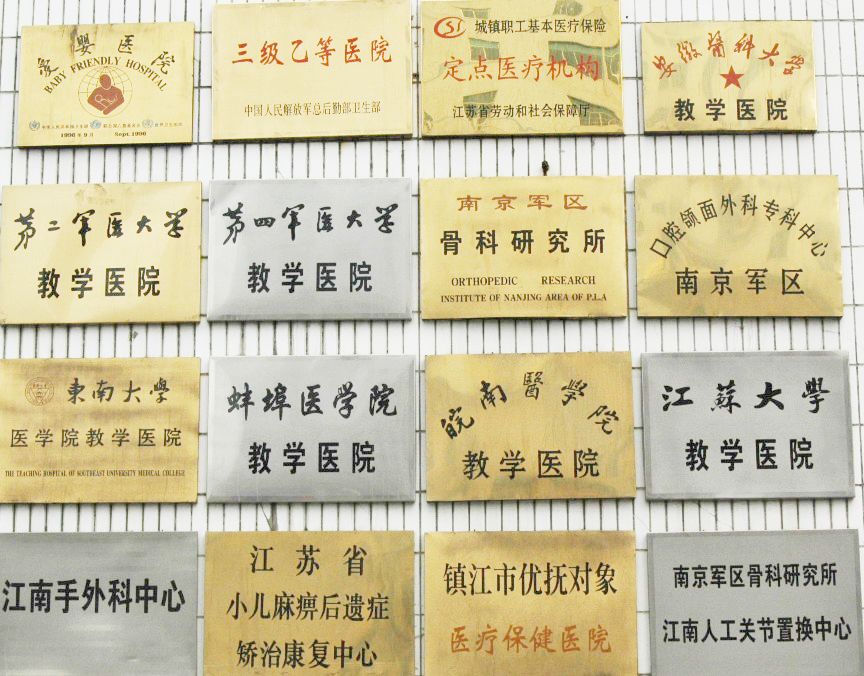 爱婴医院
BABY FRIENDLY HOSPITAL
1996年9月 Sept.1996
三级乙等医院
中国人民解放军总后勤部卫生部
城镇职工基本医疗保险
定点医疗机构
江苏省劳动和社会保障厅
安徽醫科大學
教学医院
第二军医大学
教学医院
第四军医大学
教学医院
南京军区
骨科研究所
ORTHOPEDIC RESEARCH
INSTITUTE OF NANJING AREA OF P.L.A
口腔颌面外科专科中心
南京军区
東南大學
医学院教学医院
THE TEACHING HOSPITAL OF SOUTHEAST UNIVERSITY MEDICAL COLLEGE
蚌埠医学院
教学医院
皖南醫學院
教学医院
江蘇大學
教学医院
江南手外科中心
江苏省
小儿麻痹后遗症
矫治康复中心
镇江市优抚对象
医疗保健医院
南京军区骨科研究所
江南人工关节置换中心